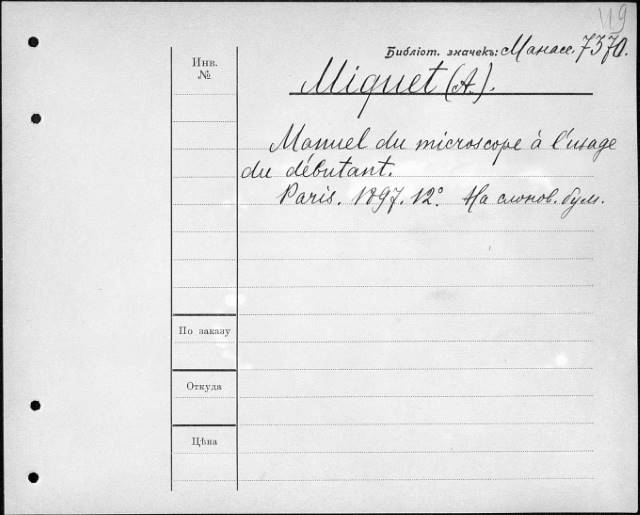 119
Библіот. значекъ: Манасс. 7370.
Инв.
№
Miquet (A.).
Manuel du microscope à l'usage
du débutant.
Paris. 1897. 12°. На слонов. бум.
По заказу
Откуда
Цѣна